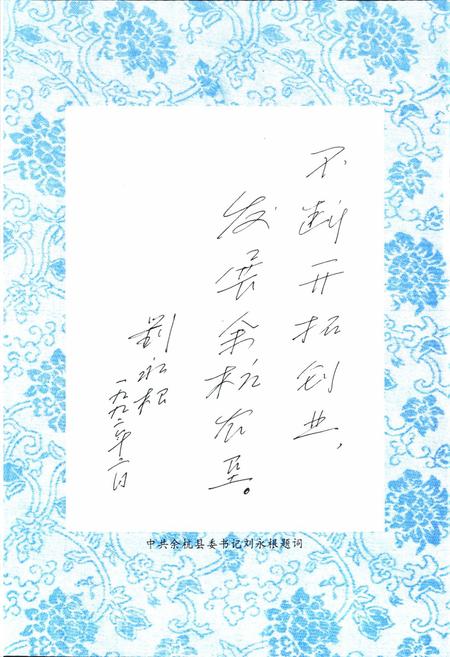 不断开拓创业，
发展余杭农垦。
刘永根
一九九二年二日
中共余杭县委书记刘永根题词